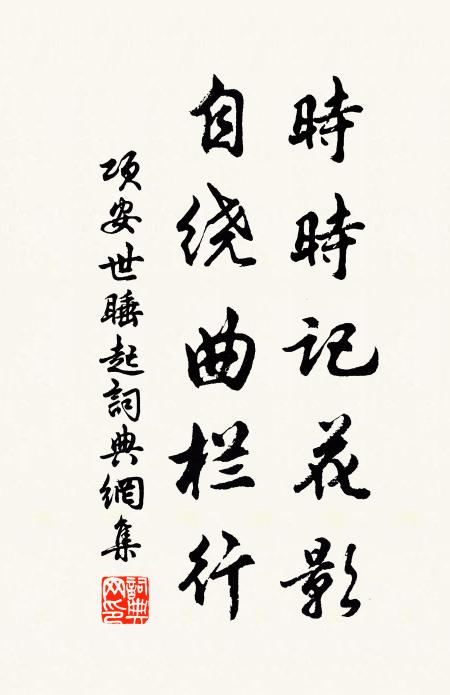 時時記花影
自绕曲栏行
项安世睡起詞典網集
詞典网印